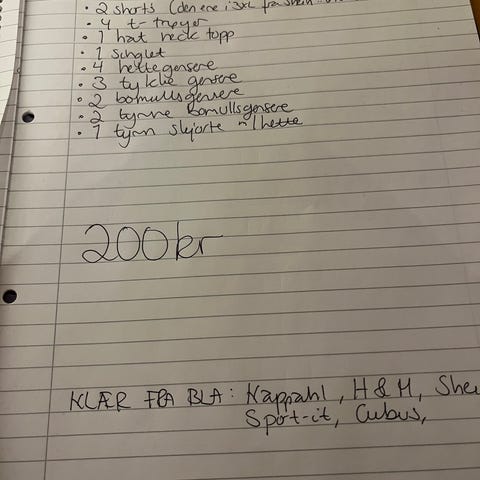 • 2 shorts (den ene i 3XL fra Shein
• 4 t-trøyer
• 1 halt neck topp
• 1 singlet
• 4 hettegensere
• 3 tykke gensere
• 2 bomullsgensere
• 2 tynne bomullsgensere
• 1 tynn skjorte m/hette
200kr
KLÆR FRA BLA: Kappahl, H&M, She
Sport-it, Cubus,